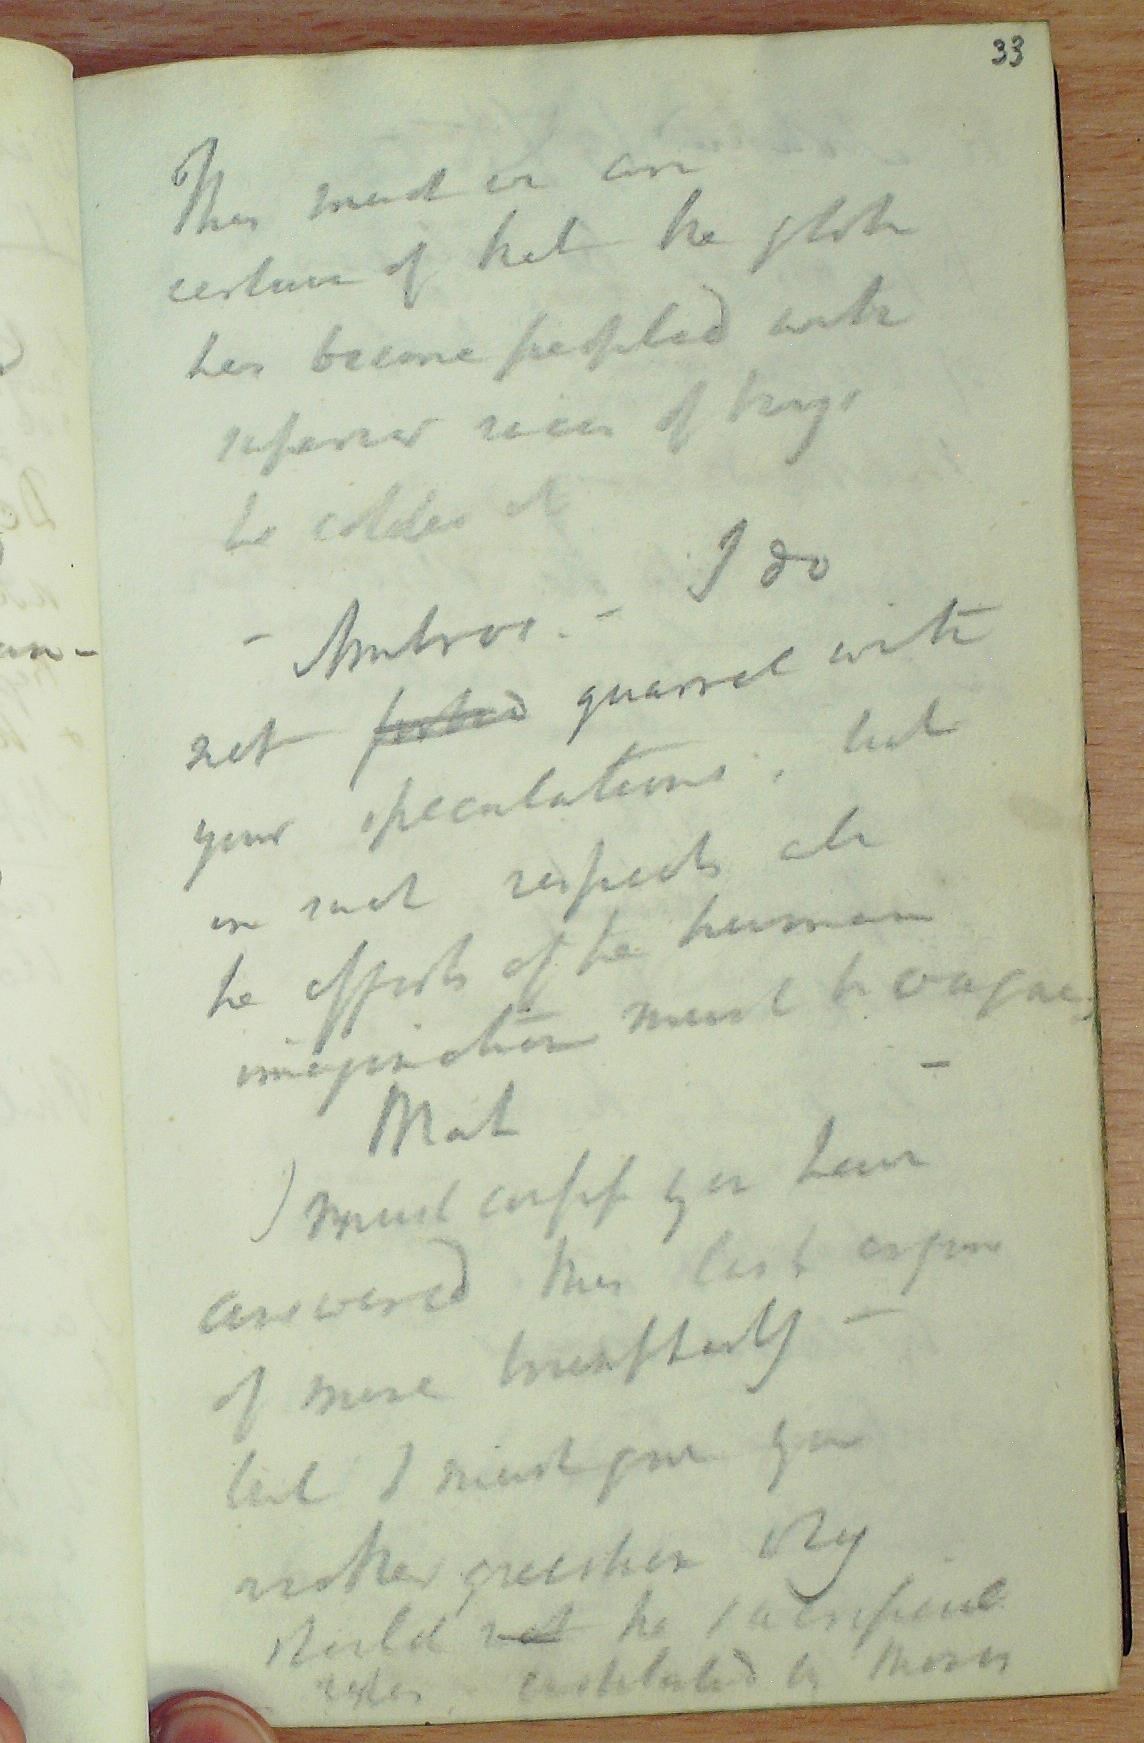 33
This much we are
certain of that the globe
has become peopled with
inferior races of beings
the colder it
I do
- Ambros. -
not quarrel with
your speculations; but
in such respects all
the efforts of the human
imagination must be vague
- Phil
I must confess you have
answered this last argum
of mine triumphantly -
but I must give you
another question why
should not the sacrificial
rites instituted by Moses